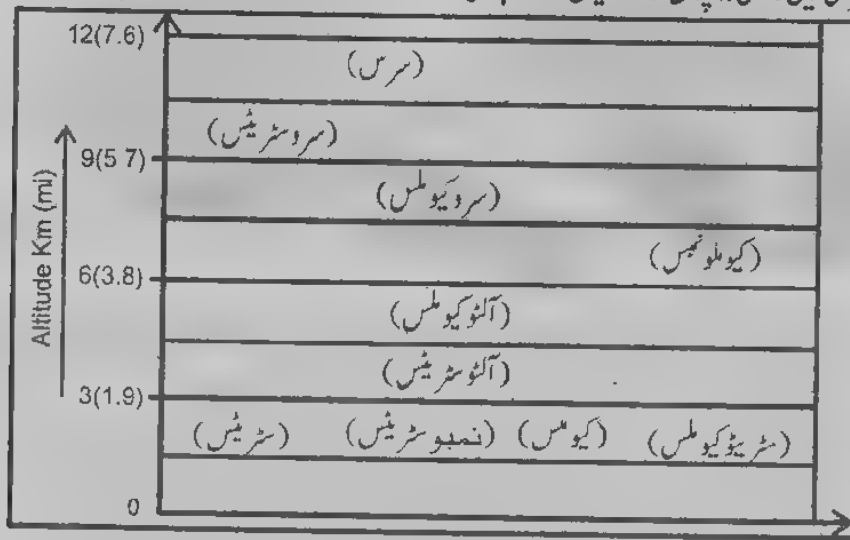 12(7.6)
(سرس)
(سروسٹریٹس)
9(5 7)
(سروکیوملس)
(کیملونمبس)
6(3.8)
(آلٹوکیوملس)
(آلٹوسٹریٹس)
3(1.9)
(سٹریٹس) (نمبوسٹریٹس) (کیومس) (سٹریٹوکیوملس)
0
Altitude Km (mi)